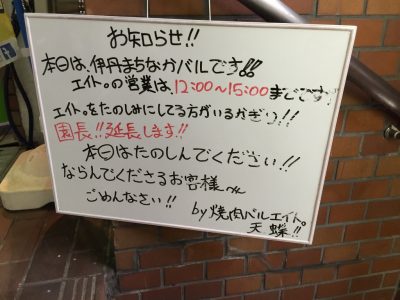 お知らせ!!
本日は、伊丹まちなかバルです!!
エイト。の営業は、12:00〜15:00までです!
エイト。をたのしみにしてる方がいるかぎり!!
園長!!延長します!!
本日はたのしんでください!!
ならんでくださるお客様へ
ごめんなさい!!
by焼肉バルエイト。
天蝶!!